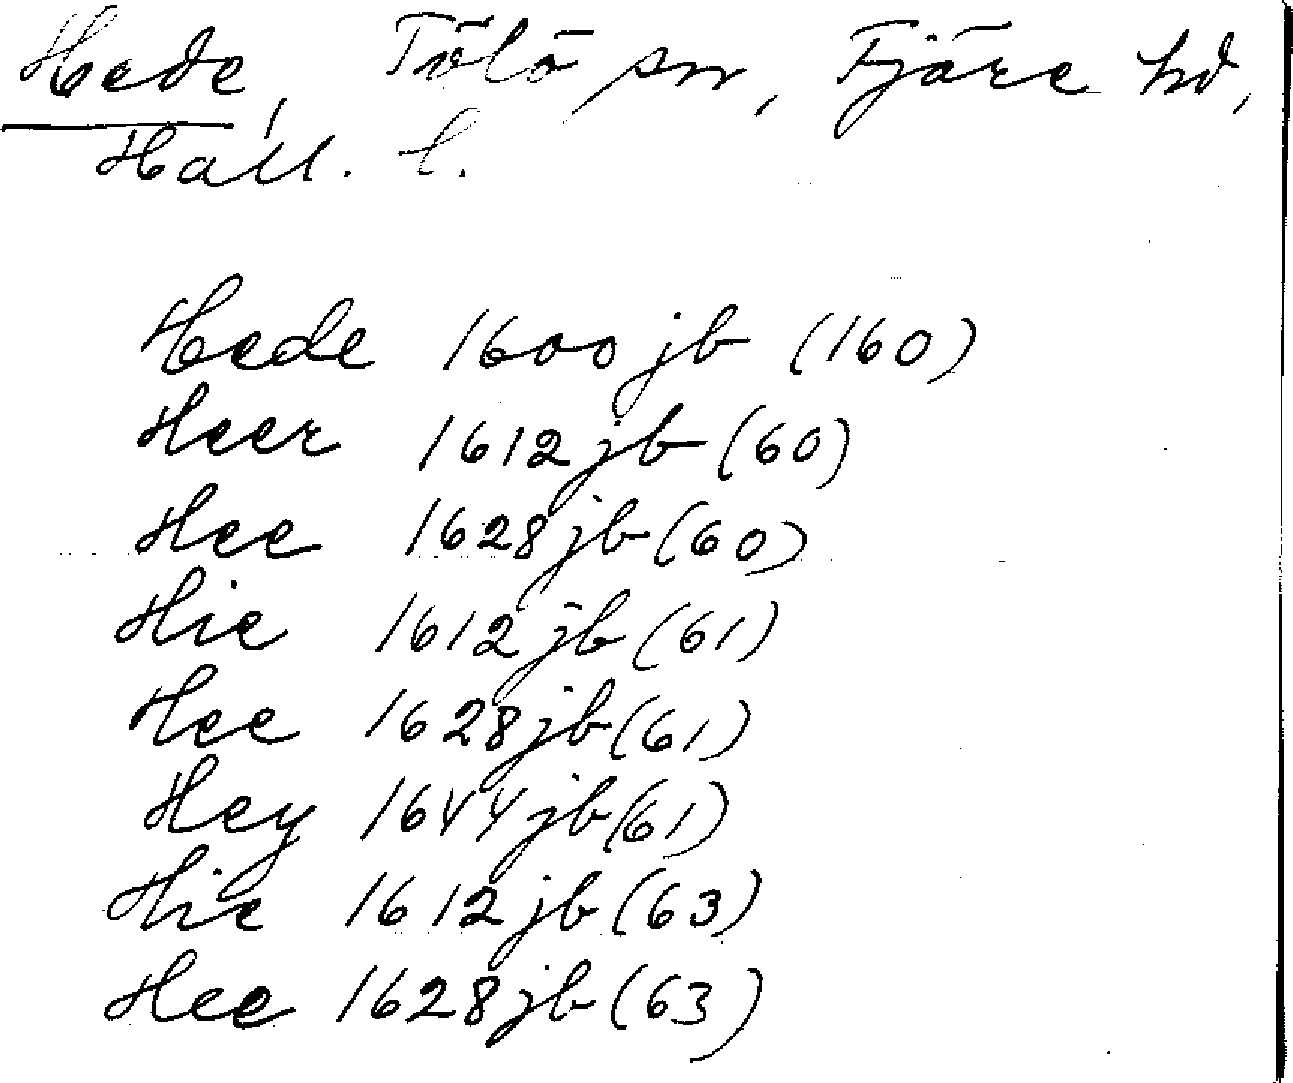 Hede, Tölö sn, Fjäre hd,
Hall. l.
Hede 1600 jb (160)
Heer 1612 jb (60)
Hee 1628 jb (60)
Hie 1612 jb (61)
Hee 1628 jb (61)
Hey 1644 jb (61)
Hie 1612 jb (63)
Hee 1628 jb (63)